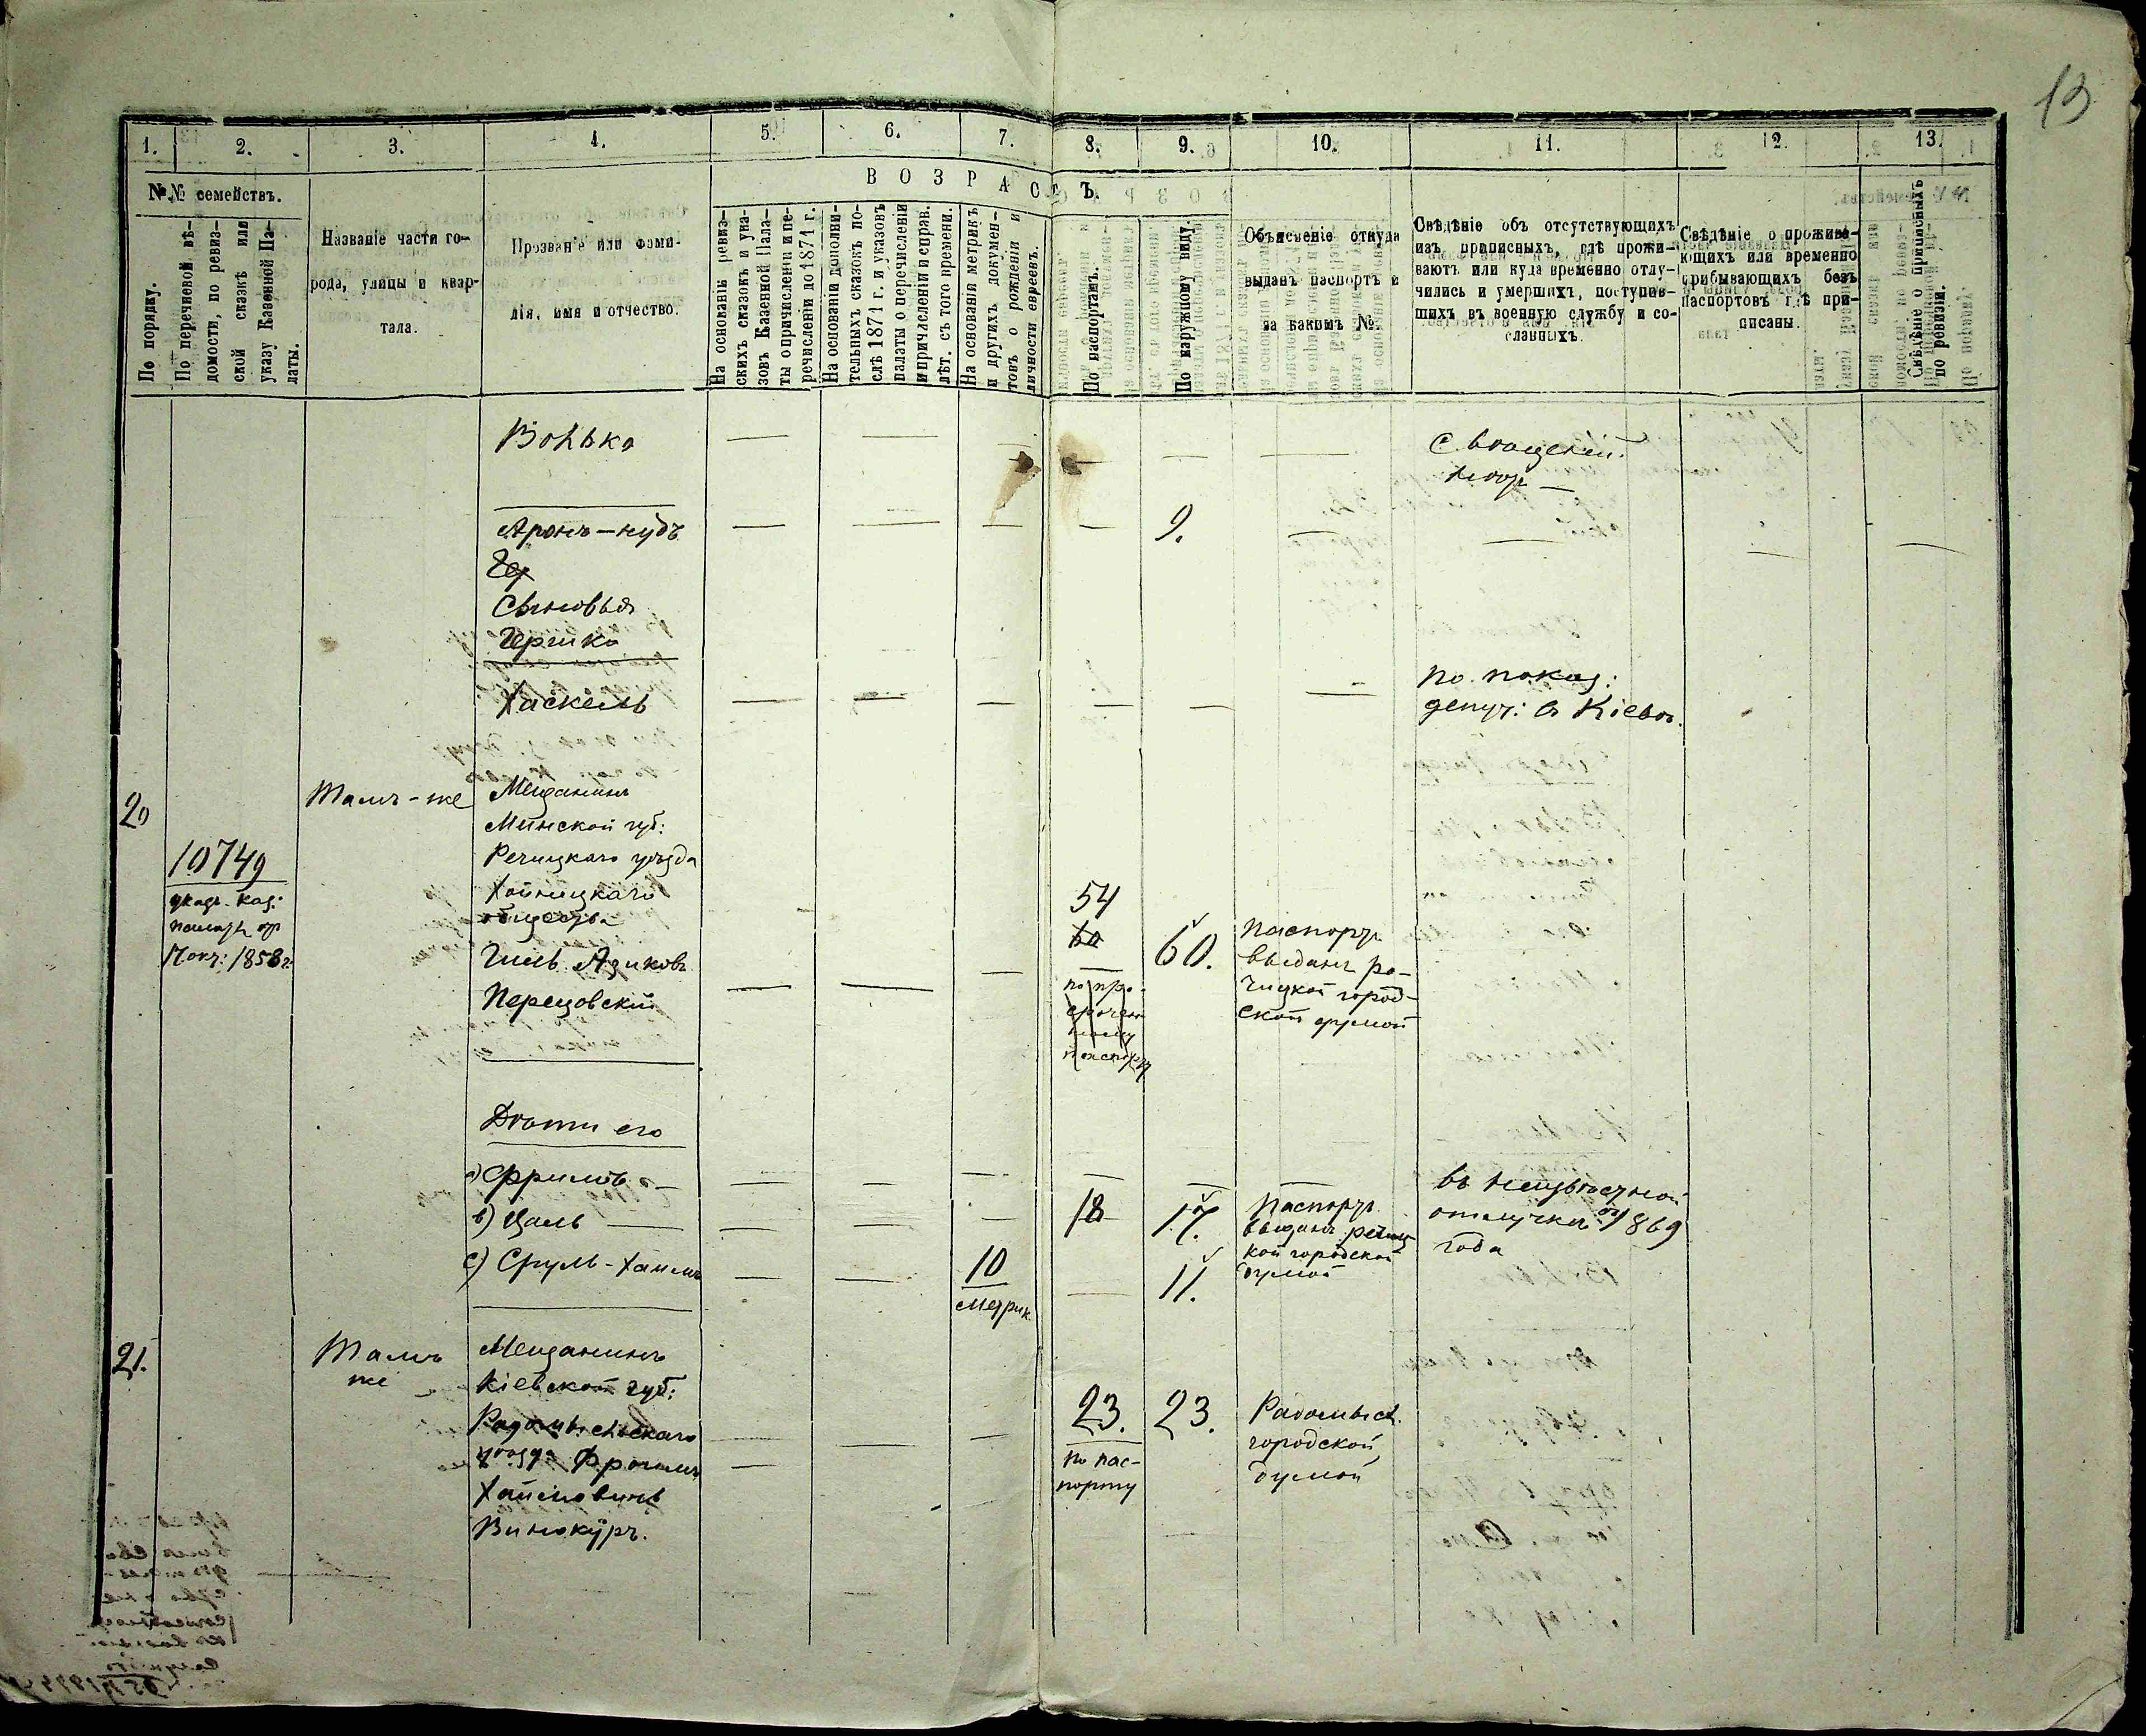 13
1. 2. 3. 4. 5. 6. 7. 8. 9. 10. 11. 12. 13.
№№ семействъ.
По порядку.
По перечневой вѣ-
домости, по ревиз-
ской сказкѣ или
указу Казенной Па-
латы.
Названіе части го-
рода, улицы и квар-
тала.
Прозваніе или фами-
лія, имя и отчество.
ВОЗРАСТЪ
На основаніи ревиз-
скихъ сказокъ и ука-
зовъ Казенной Пала-
ты о причисленіи и пе-
речисленіи до 1871 г.
На основаніи дополни-
тельныхъ сказокъ по-
слѣ 1871 г. и указовъ
палаты о перечисленіи
и причисленіи и справ.
лѣт. съ того времени.
На основаніи метрикъ
и другихъ докумен-
товъ о рожденіи и
личности евреевъ.
По паспортамъ.
По наружному виду.
Объясненіе откуда
выданъ паспортъ и
за какимъ №.
Свѣдѣніе объ отсутствующихъ
изъ приписныхъ, гдѣ прожи-
ваютъ или куда временно отлу-
чились и умершихъ, поступив-
шихъ въ военную службу и со-
сланныхъ.
Свѣдѣніе о прожива-
ющихъ или временно
прибывающихъ безъ
паспортовъ гдѣ при-
писаны.
Свѣдѣніе о приписныхъ
по ревизіи.
Волько — — — — — —
Аронъ-нудъ — — — — 9. — — — —
Сыновья
Гершко
Хаскель — — — — — —
по показ:
депут: в Кіевѣ.
20
10749
указъ каз:
палаты от
17 окт: 1858 г.
Тамъ-же
Мещанинъ
Минской губ:
Речицкаго уѣзда
Хойницкаго
общества
Гиль
Перецовскій
— — —
54
60
по про-
срочен
ному
паспорту
60.
Паспортъ
выданъ ре-
чицкой город-
ской думой
Дѣти его
а) Фроимъ — — — — — —
въ неизвѣстной
отлучкѣ от 1869
года
в) Цаль — — — — 18 17.
Паспортъ
выданъ речиц
кой городской
думой
с) Сруль-Хаимъ — —
10
метрик.
— 11.
21.
Тамъ
же
Мещанинъ
Кіевской губ:
Радомысльскаго
уѣзда Фроимъ
Хаимовичъ
Винокуръ.
— — —
23.
по пас-
порту
23.
Радомысл.
городской
думой